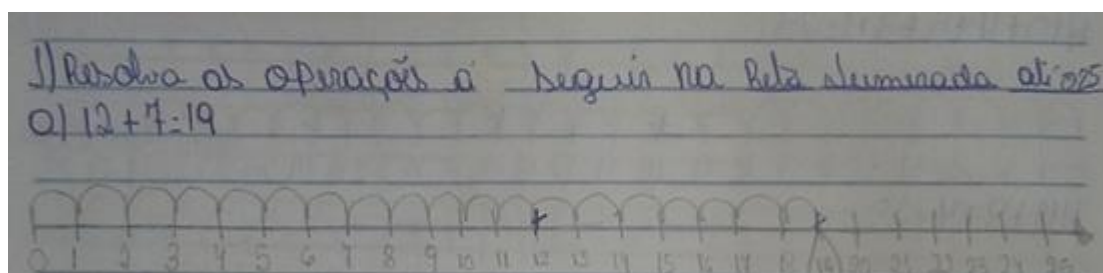 1) Resolva os operações a seguir na Reta Numerada até o 25
a) 12+7=19
0 1 2 3 4 5 6 7 8 9 10 11 12 13 14 15 16 17 18 19 20 21 22 23 24 25